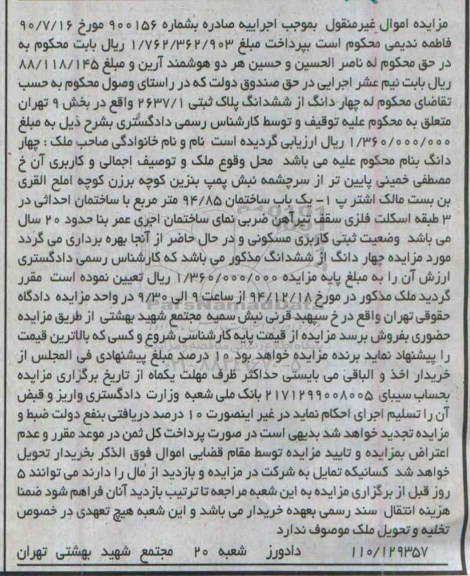 مزایده اموال غیرمنقول بموجب اجراییه صادره بشماره ۹۰۰۱۵۶ مورخ ۹۰/۷/۱۶
فاطمه ندیمی محکوم است بپرداخت مبلغ ۱/۷۶۲/۳۶۲/۹۰۳ ریال بابت محکوم به
در حق محکوم له ناصر الحسین و حسین هر دو هوشمند آرین و مبلغ ۸۸/۱۱۸/۱۴۵
ریال بابت نیم عشر اجرایی در حق صندوق دولت که در راستای وصول محکوم به حسب
تقاضای محکوم له چهار دانگ از ششدانگ پلاک ثبتی ۲۶۳۷/۱ واقع در بخش ۹ تهران
متعلق به محکوم علیه توقیف و توسط کارشناس رسمی دادگستری بشرح ذیل به مبلغ
۱/۳۶۰/۰۰۰/۰۰۰ ریال ارزیابی گردیده است نام و نام خانوادگی صاحب ملک : چهار
دانگ بنام محکوم علیه می باشد محل وقوع ملک و توصیف اجمالی و کاربری آن خ
مصطفی خمینی پایین تر از سرچشمه نبش پمپ بنزین کوچه برزن کوچه املح القری
بن بست مالک اشتر پ ۱- یک باب ساختمان ۹۴/۸۵ متر مربع با ساختمان احداثی در
۳ طبقه اسکلت فلزی سقف تیرآهن ضربی نمای ساختمان اجری عمر بنا حدود ۲۰ سال
می باشد وضعیت ثبتی کاربری مسکونی و در حال حاضر از آنجا بهره برداری می گردد
مورد مزایده چهار دانگ از ششدانگ مذکور می باشد که کارشناس رسمی دادگستری
ارزش آن را به مبلغ پایه مزایده ۱/۳۶۰/۰۰۰/۰۰۰ ریال تعیین نموده است مقرر
گردید ملک مذکور در مورخ ۹۴/۱۲/۱۸ از ساعت ۹ الی ۹/۳۰ در واحد مزایده دادگاه
حقوقی تهران واقع در خ سپهبد قرنی نبش سمیه مجتمع شهید بهشتی از طریق مزایده
حضوری بفروش برسد مزایده از قیمت پایه کارشناسی شروع و کسی که بالاترین قیمت
را پیشنهاد نماید برنده مزایده خواهد بود ۱۰ درصد مبلغ پیشنهادی فی المجلس از
خریدار اخذ و الباقی می بایستی حداکثر ظرف مهلت یکماه از تاریخ برگزاری مزایده
بحساب سیبای ۲۱۷۱۲۹۹۰۰۸۰۰۵ بانک ملی شعبه وزارت دادگستری واریز و قبض
آن را تسلیم اجرای احکام نماید در غیر اینصورت ۱۰ درصد دریافتی بنفع دولت ضبط و
مزایده تجدید خواهد شد بدیهی است در صورت پرداخت کل ثمن در موعد مقرر و عدم
اعتراض بمزایده و تایید مزایده توسط مقام قضایی اموال فوق الذکر بخریدار تحویل
خواهد شد کسانیکه تمایل به شرکت در مزایده و بازدید از مال را دارند می توانند ۵
روز قبل از برگزاری مزایده به این شعبه مراجعه تا ترتیب بازدید آنان فراهم شود ضمنا
هزینه انتقال سند رسمی بعهده خریدار می باشد و این شعبه هیچ تعهدی در خصوص
تخلیه و تحویل ملک موصوف ندارد
۱۱۰/۱۲۹۳۵۷ دادورز شعبه ۲۰ مجتمع شهید بهشتی تهران